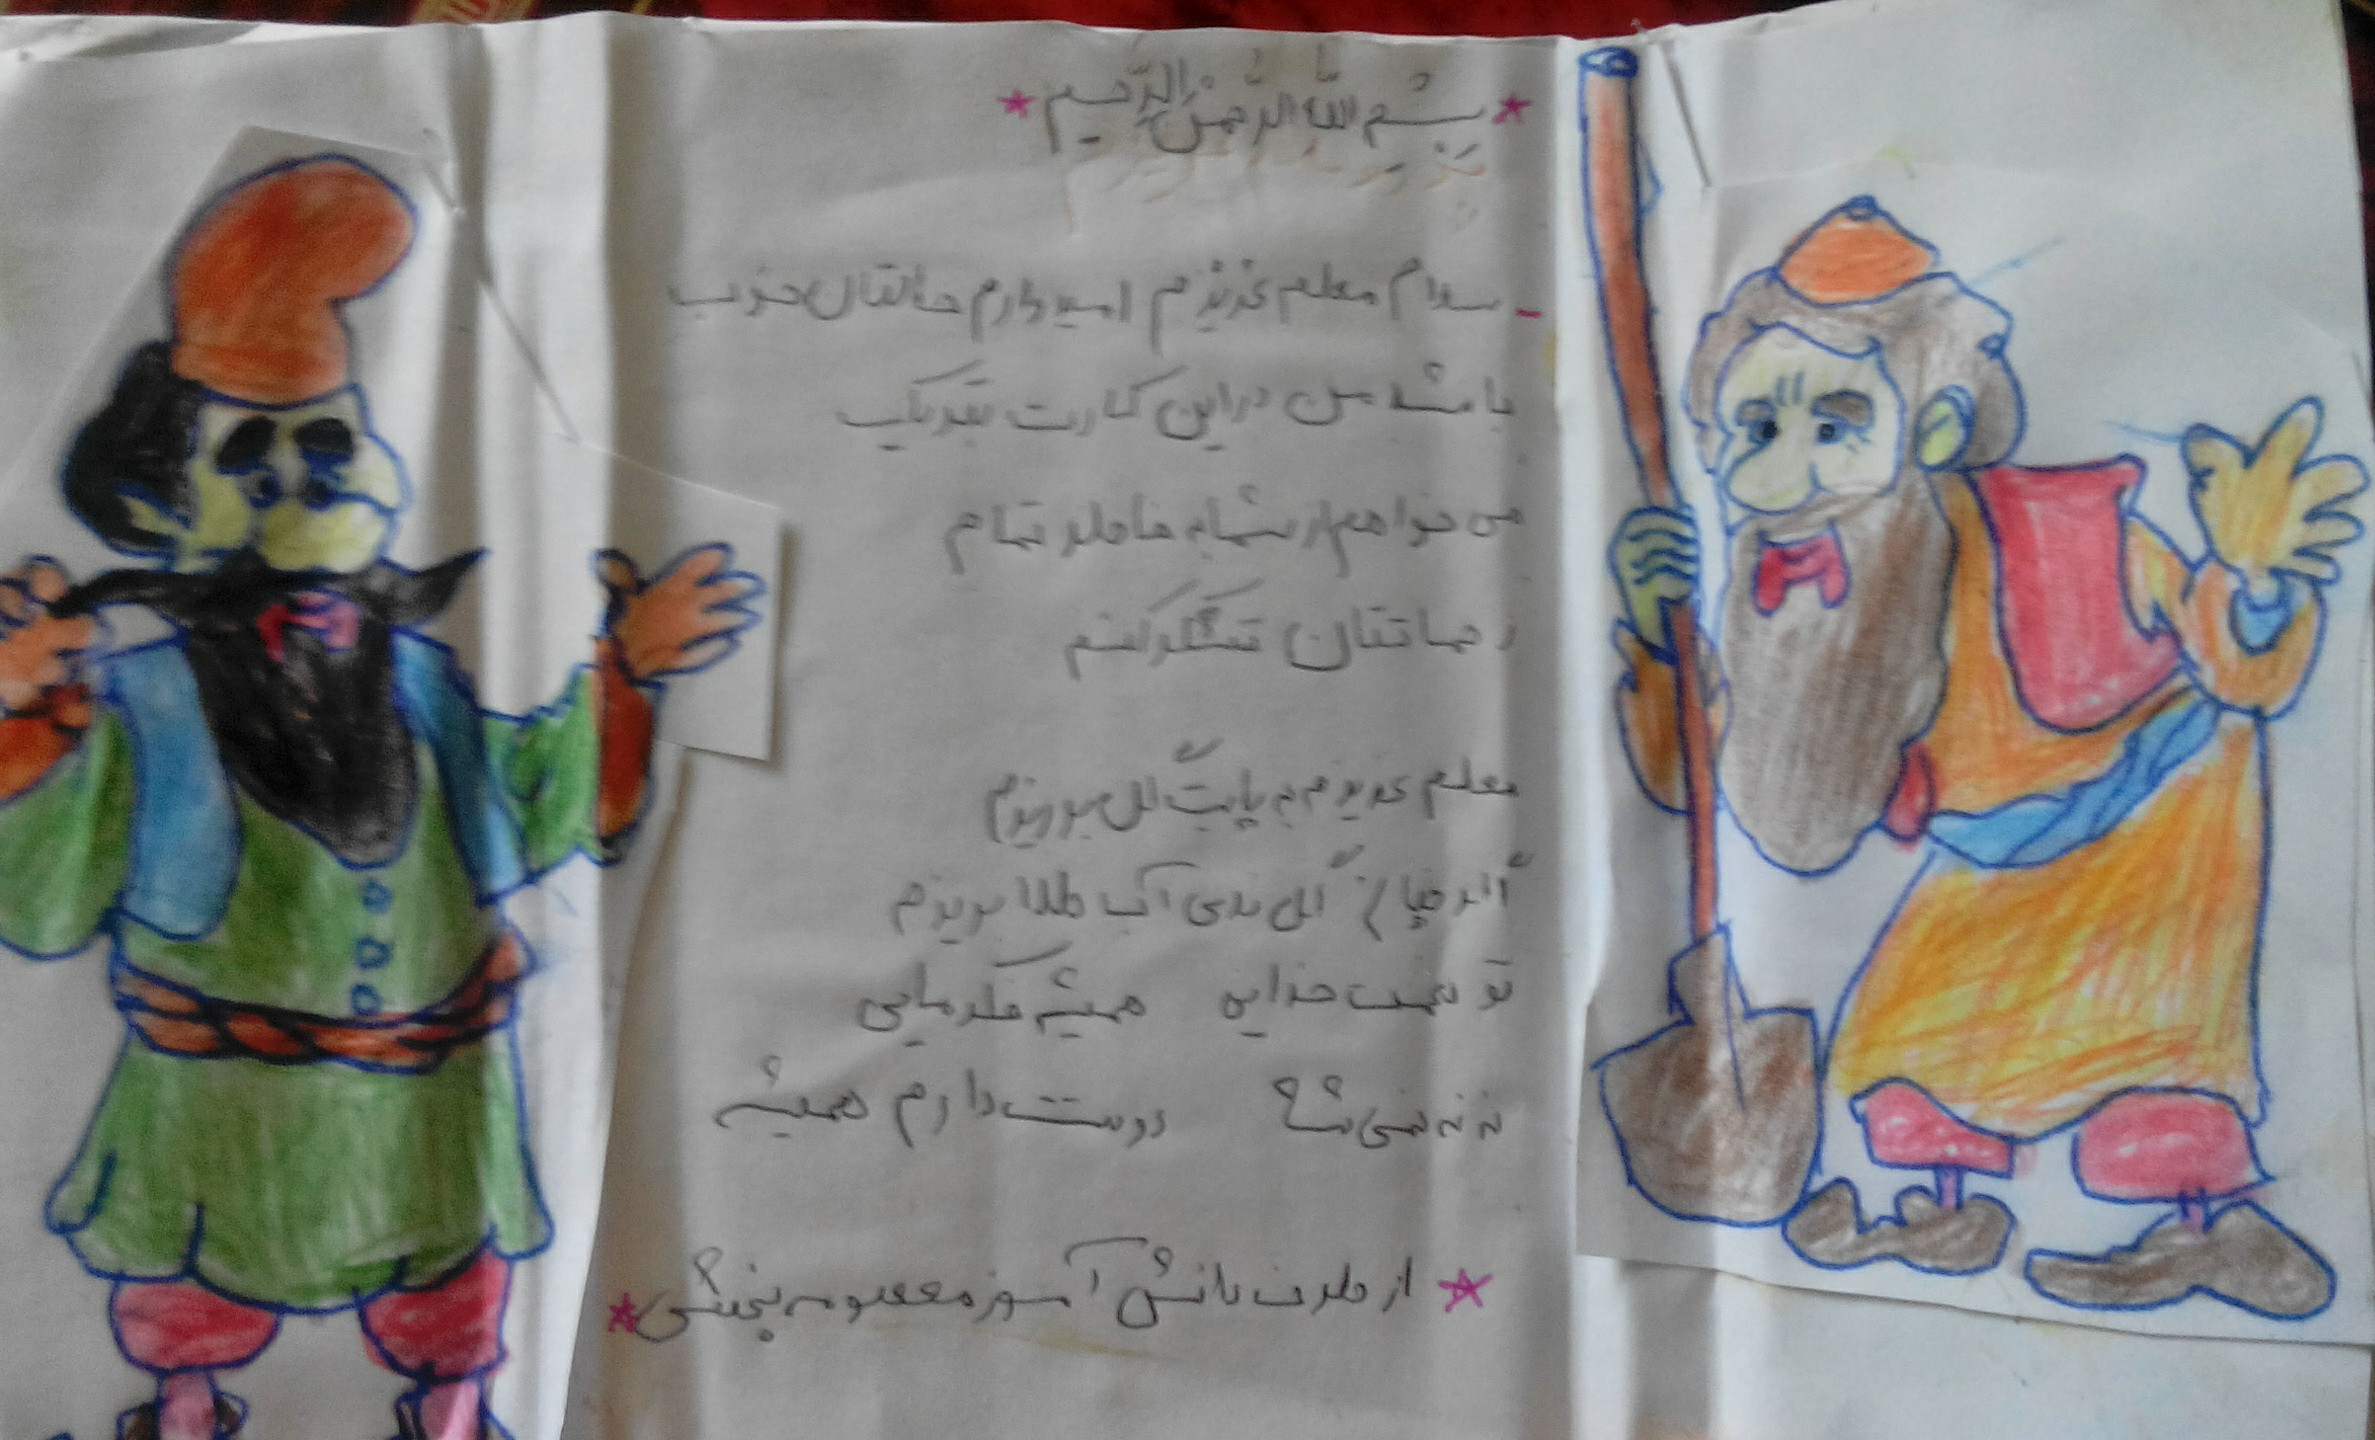 بِسْمِ اللّهِ الرَّحْمنِ الرَّحیم
- سلام معلم عزیزم امیدوارم حالتان خوب
باشد من در این کارت تبریک
می خواهم از شما به خاطر تمام
زحماتتان تشکر کنم
معلم عزیزم به پایت گل بریزم
اگر خیا گل ندی آب طلا بریزم
تو نعمت خدایی همیشه فکر مایی
نه نه نمی شه دوست دارم همیشه
از طرف دانش آموز معصومه بخشی